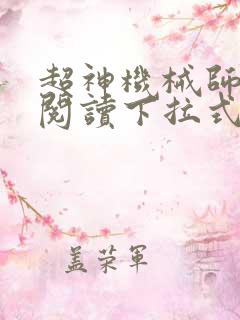 超神機械師
閱讀下拉式
蓋榮軍